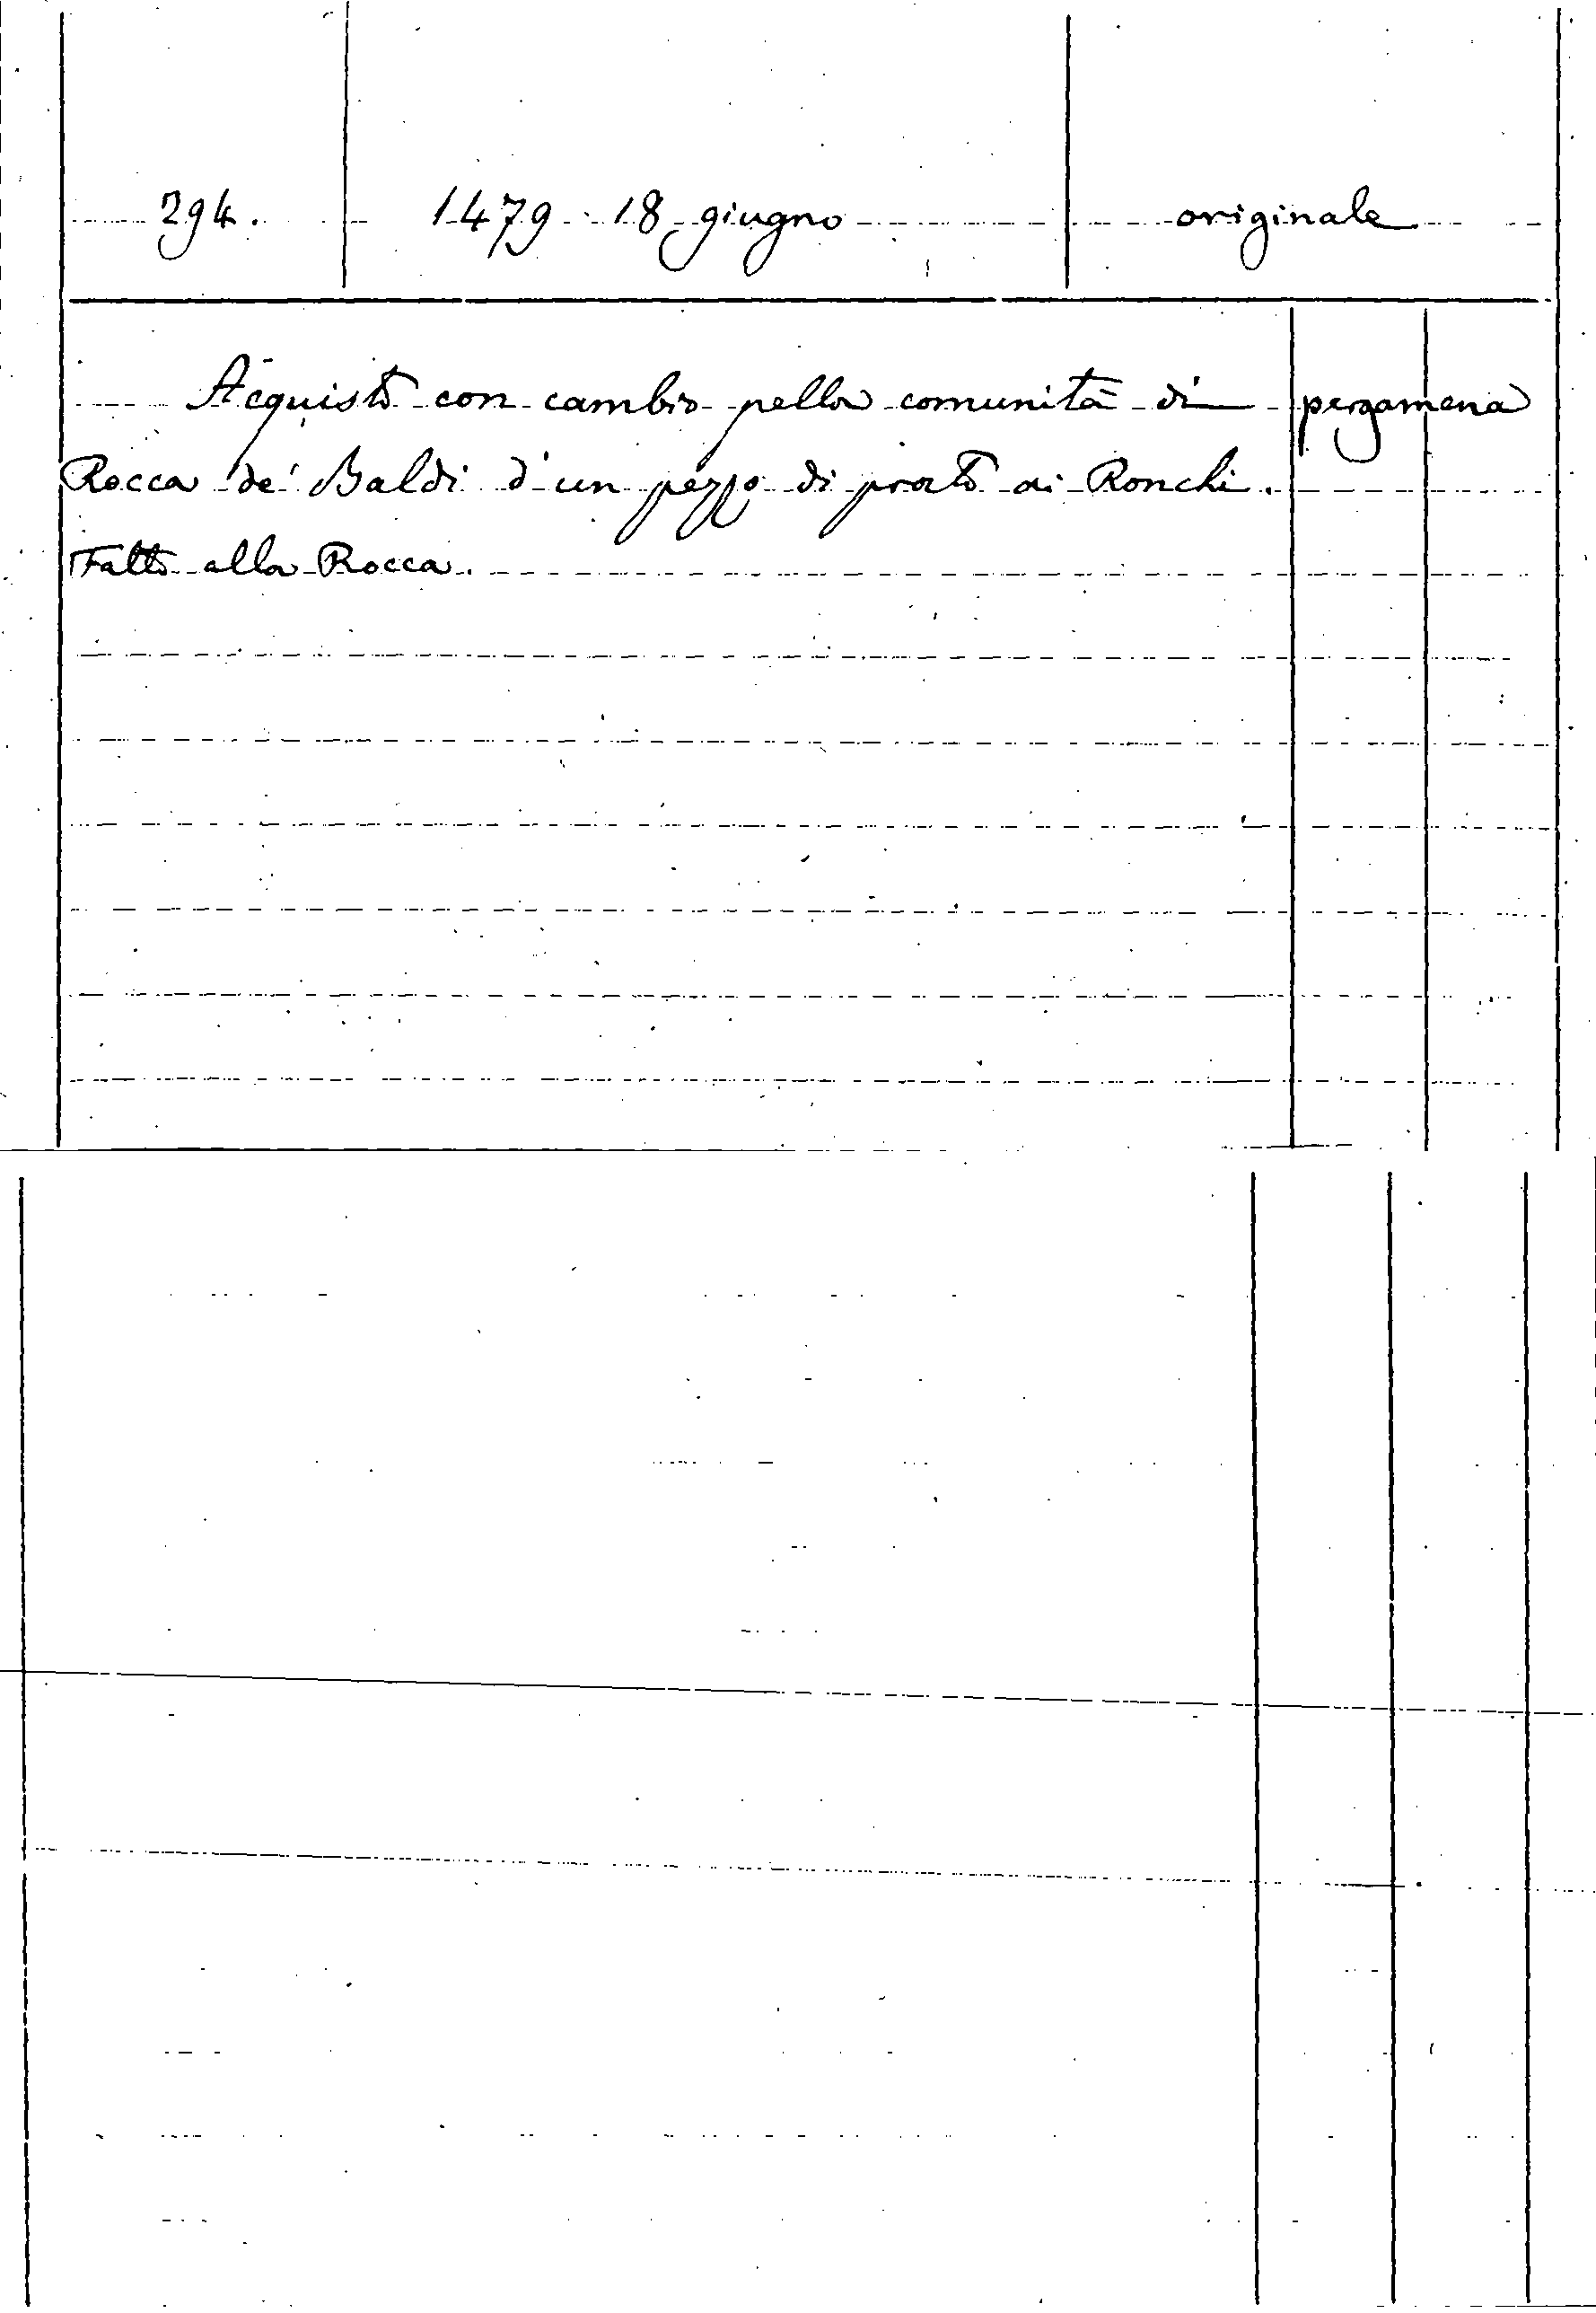 294. 1479 18 giugno originale
Acquisto con cambio pella comunità di pergamena
Rocca de' Baldi d'un pezzo di prato ai Ronchi.
Fatto alla Rocca.